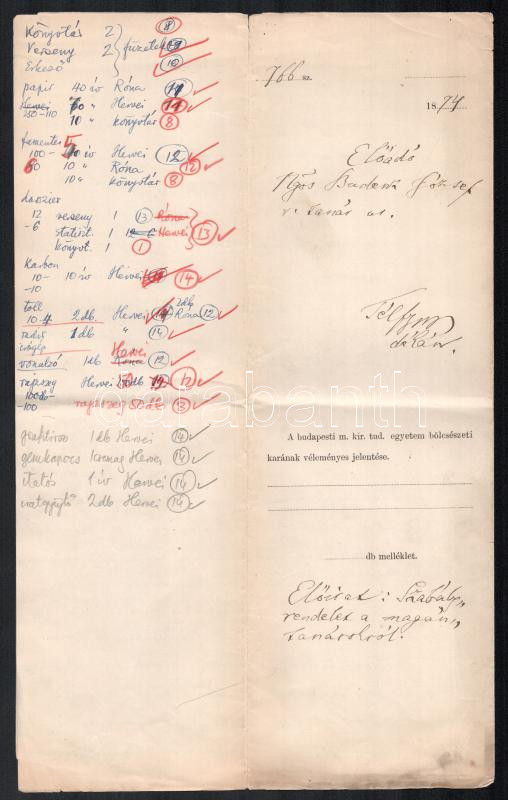 Könyvtár 2 8
Verseny 2 füzetek 9
Érkező 10
papir 40 ív Róna 11
Hevei 70 " Hevei 11
250-110 10 " könyvtár 8
famentes 5
100- 40 ív Hevei 12
60 10 " Róna 12
10 " könyvtár 8
dosszier
12 verseny 1 13 Róna
-6 statiszt. 1 Hevei 13
könyvt. 1 1
karbon
10- 10 ív Hevei 14
-10
toll 2 db
10-4 2 db Hevei 14 Róna 12
radír 1 db " 14
üvegép Hevei
vonalzó 1 db Róna 12
rajzszeg Hevei 50 db 12 12
100 db
-100 rajzszeg 50 db 13
1 db Hevei 14
gemkapocs 1 csomag Hevei 14
itatós 1 ív Hevei 14
iratgyűjtő 2 db Hevei 14
766 sz.
1874
Előadó
Ngos Budenz József
r. tanár ur.
Télfy
dékán.
A budapesti m. kir. tud. egyetem bölcsészeti
karának véleményes jelentése.
db melléklet.
Előirat: Szabály„
rendelet a magán„
tanárokról.
darabanth